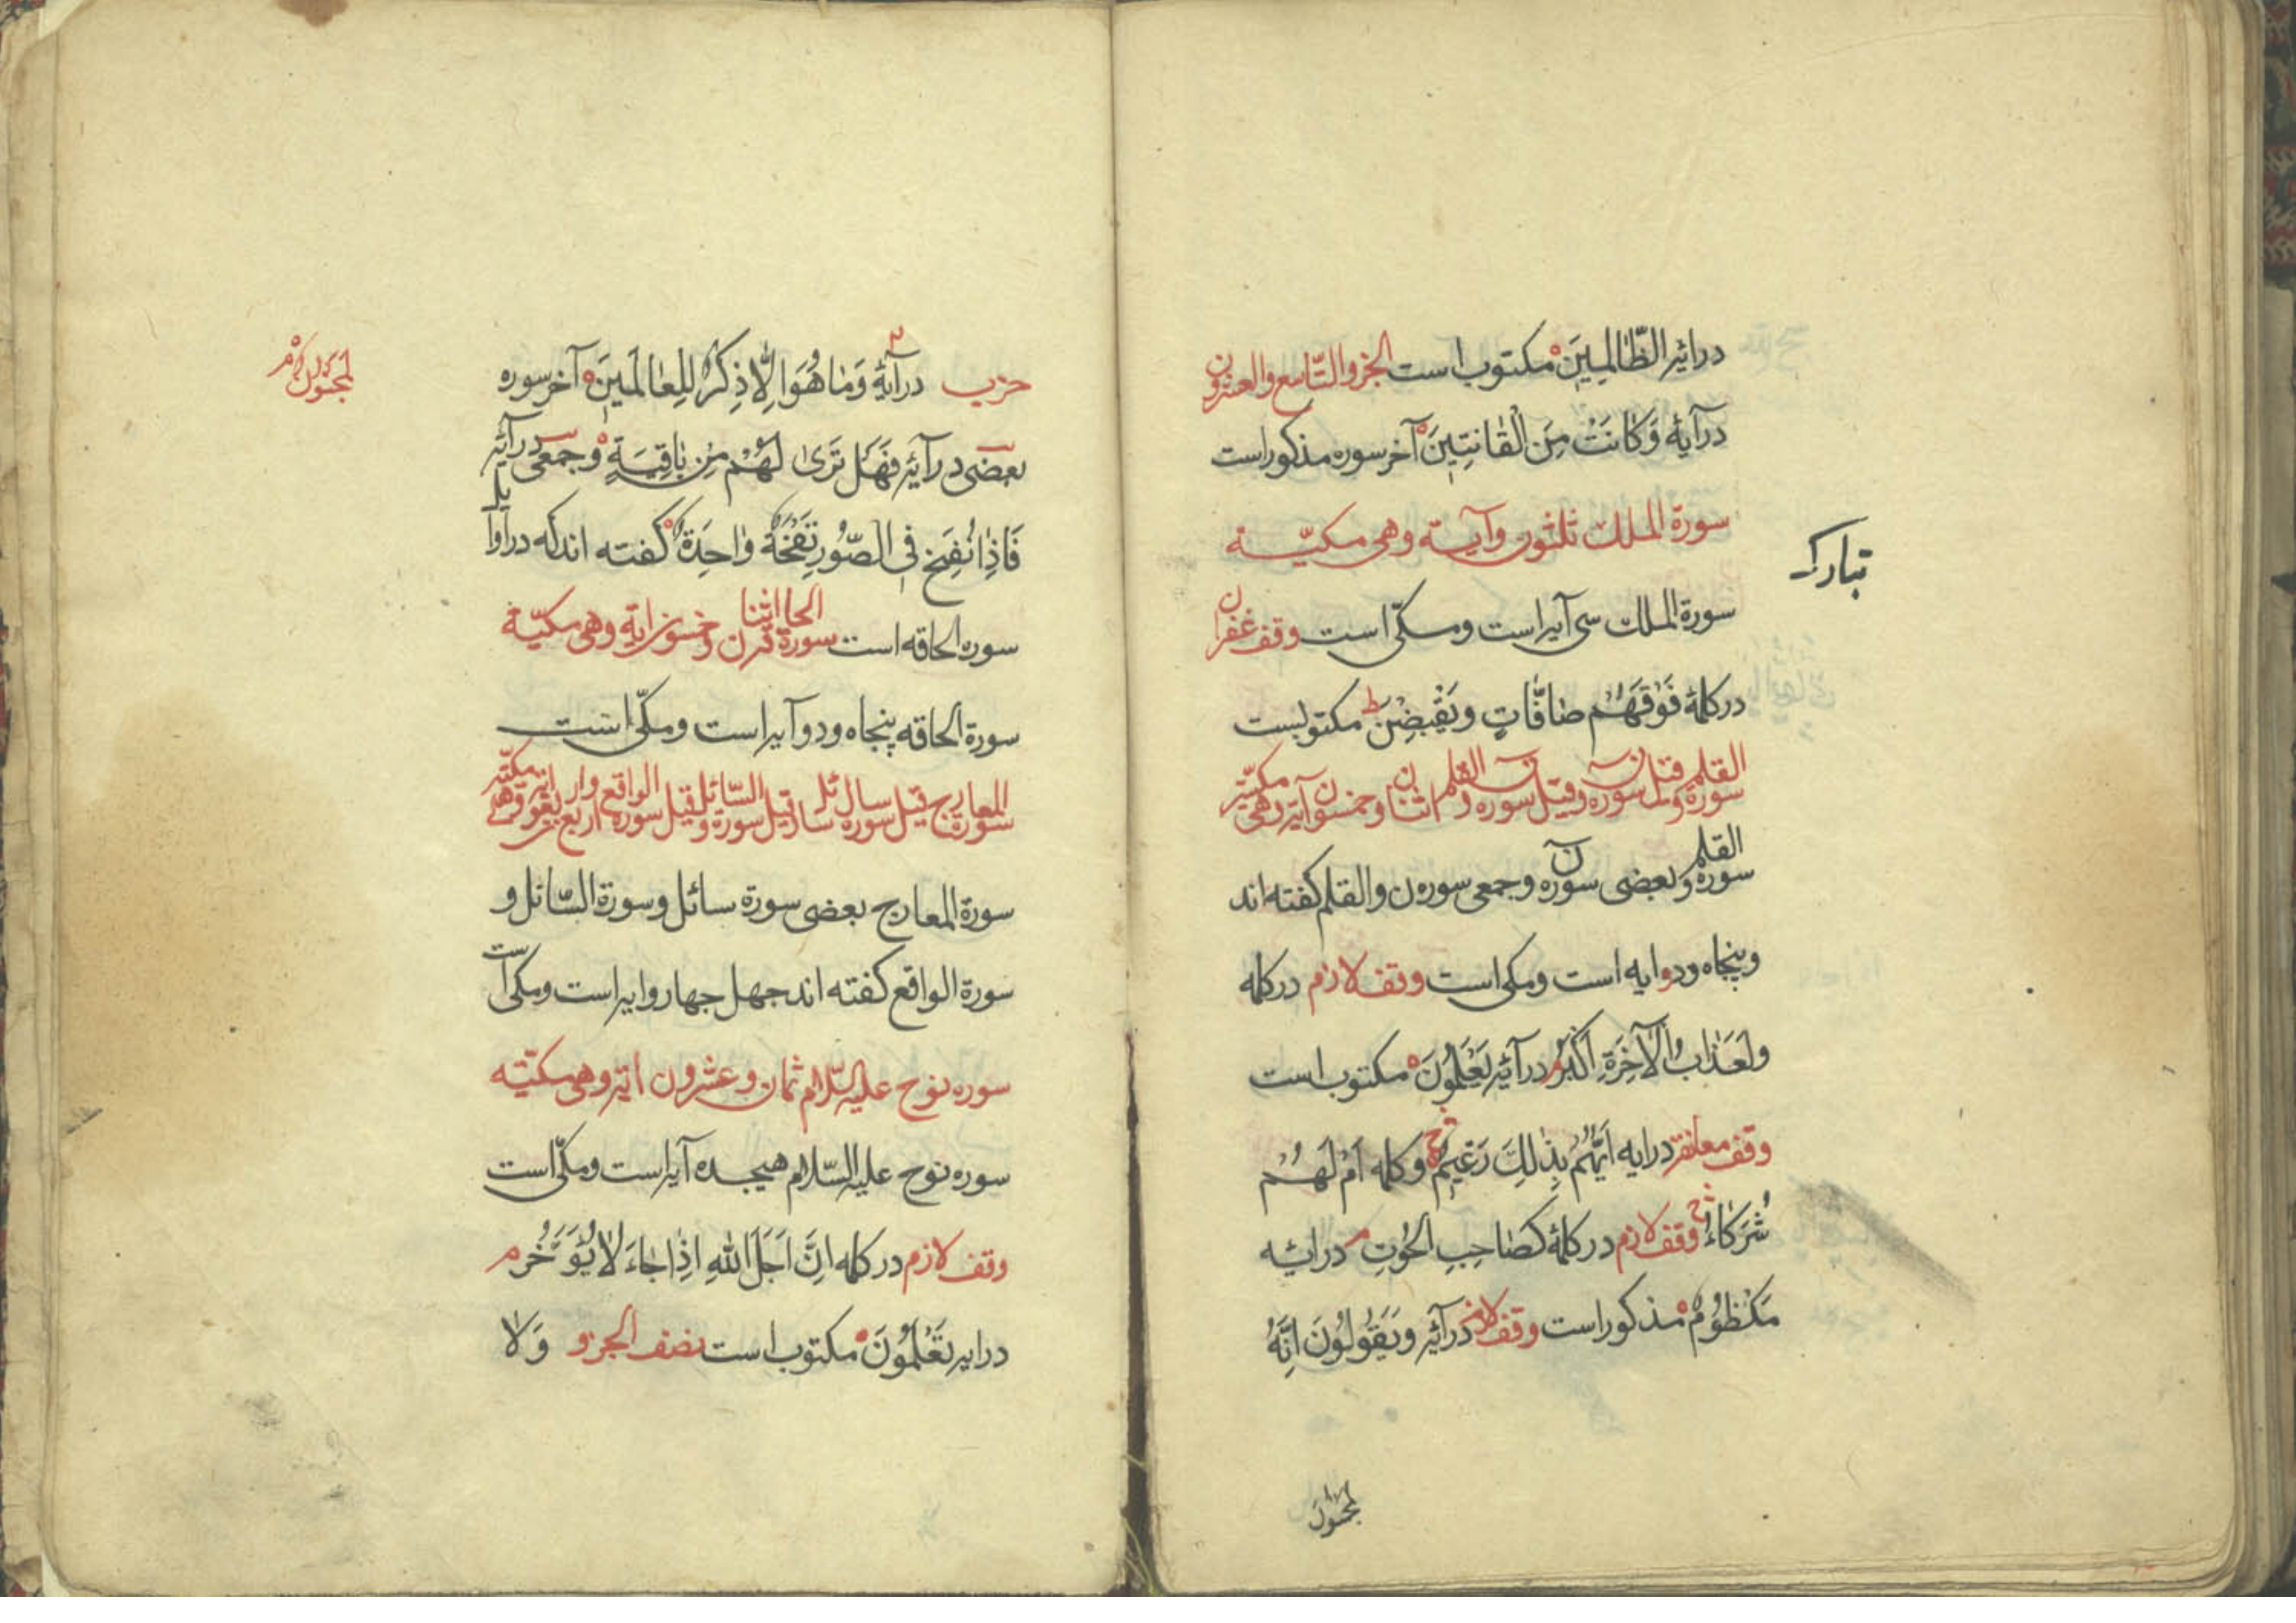 درایه الظَّالِمِینَ مکتوب است الجزو التاسع والعشرون
درآیهٔ وَکَانَتْ مِنَ الْقَانِتِینَ آخر سوره مذکور است
سورة الملک ثلثون وآیة وهی مکیّة
تبارک
سورة الملک سی آیه است ومکّی است وقف غفران
در کلمهٔ فَوْقَهُمْ صَافَّاتٍ وَیَقْبِضْنَ ط مکتوبست
سورة القلم وقیل سوره ن وقیل سوره ن والقلم اثنان وخمسون آیه وهی مکیّه
سورة القلم وبعضی سوره ن وجمعی سوره ن والقلم کفته اند
وپنجاه ودو ایه است ومکی است وقف لازم در کلمه
وَلَعَذَابُ الْآخِرَةِ اَکْبَرُ م درآیه یَعْلَمُونَ مکتوب است
وقف معانقه درایه اَیُّهُمْ بِذٰلِکَ زَعِیمٌ وکلمه اَمْ لَهُمْ
شُرَکَاءُ وقف لازم در کلمهٔ کَصَاحِبِ الْحُوتِ م درایه
مَکْظُومٌ مذکور است وقف لازم درآیه وَیَقُولُونَ اِنَّهُ
لمجنون
لمجنون م
حزب درآیهٔ وَمَا هُوَ اِلَّا ذِکْرٌ لِلْعَالَمِینَ آخر سوره
بعضی درآیه فَهَلْ تَرٰی لَهُمْ مِنْ بَاقِیَةٍ وجمعی درآیه
فَاِذَا نُفِخَ فِی الصُّورِ نَفْخَةٌ وَاحِدَةٌ کفته اند که در اوایل
سوره الحاقه است سورة الحاقة اثنان وخمسون ایة وهی مکیّة
سورة الحاقه پنجاه ودو آیه است ومکّی است
سورة المعارج وقیل سوره سال سائل وقیل سورة السّائل وقیل سورة الواقع اربع واربعون ایه وهی مکیّه
سورة المعارج بعضی سورة سائل وسورة السّائل و
سورة الواقع کفته اند جهل جهار وایه است ومکی است
سوره نوح علیه السّلام ثمان وعشرون ایه وهی مکیّه
سوره نوح علیه السّلام هیجده آیه است ومکّی است
وقف لازم در کلمه اِنَّ اَجَلَ اللهِ اِذَا جَاءَ لَا یُؤَخَّرُ م
درایه تَعْلَمُونَ مکتوب است نصف الجزو وَلَا